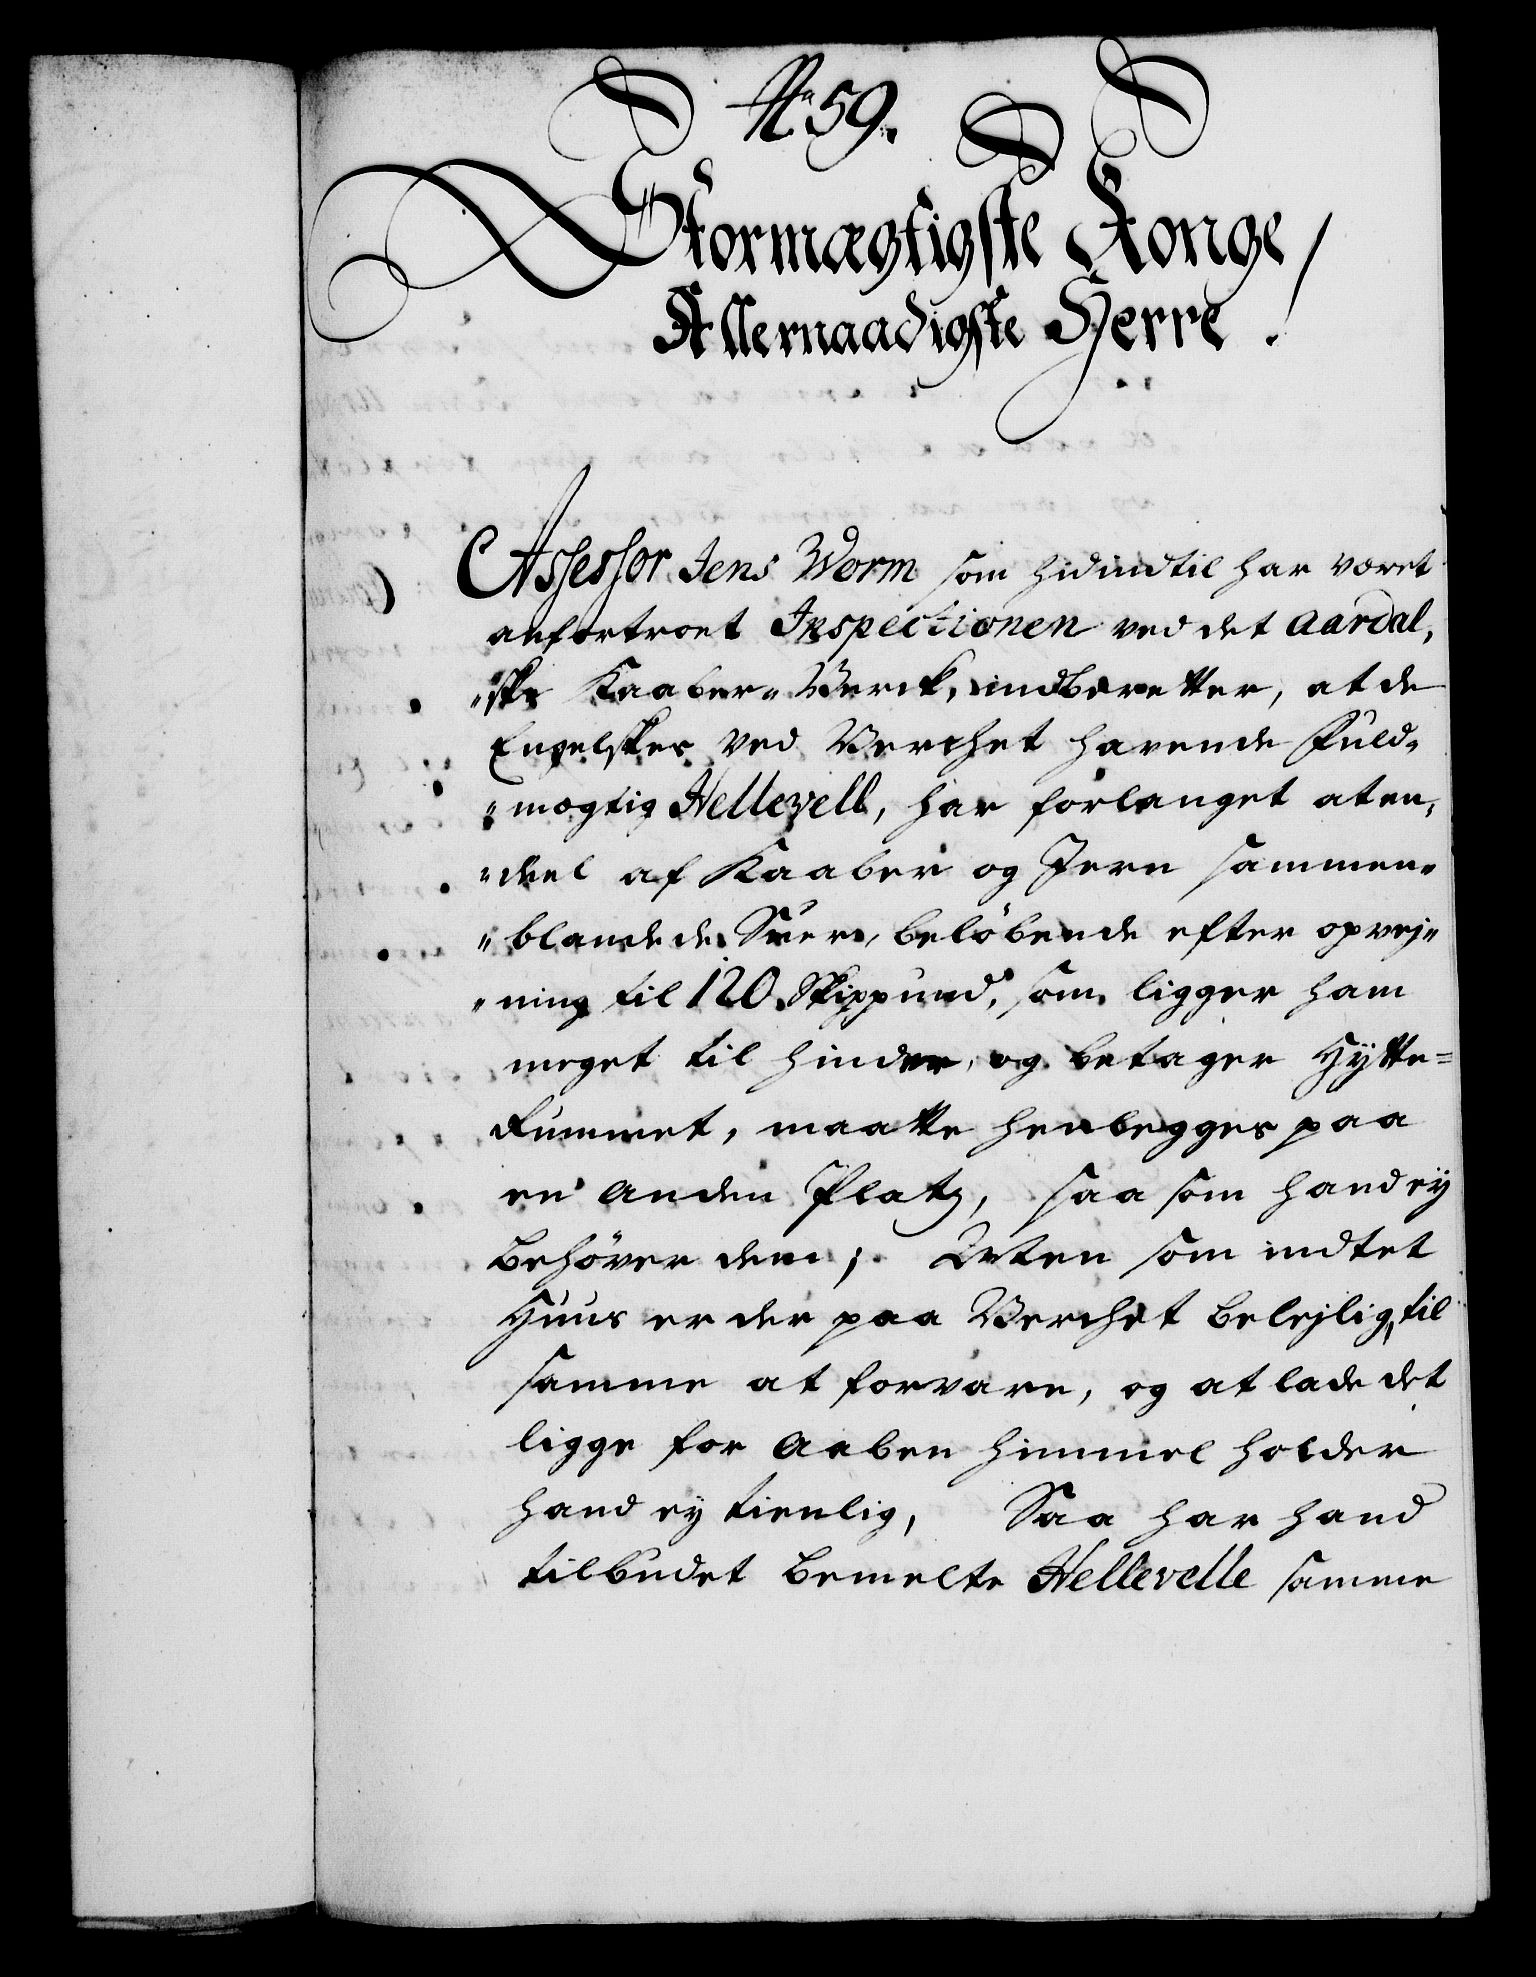 No 59.
Stormægtigste Konge
Allernaadigste Herre!
Assessor Jens Worm som hidindtil har været
anfortroet Inspectionen ved det Aardal,
"ske Kaaber-Verck, indberetter, at de
Engelskes ved Verchet havende Fuld-
"mægtig Hellevell, har forlanget at en,
"deel af Kaaber og Jern sammen"
"blandede Suer, beløbende efter opvej"
"ning til 120 Skippund, som ligger ham
meget til hinder, og betager Hytte=
Rummet, maatte henlegges paa
en anden Platz, saasom hand ey
behøver dem; Men som indtet
Huus er der paa Verchet belejlig, til
samme at forvare, og at lade det
ligge for aaben himmel holder
hand ey tienlig, Saa har hand
tilbudet bemelte Hellevelle samme